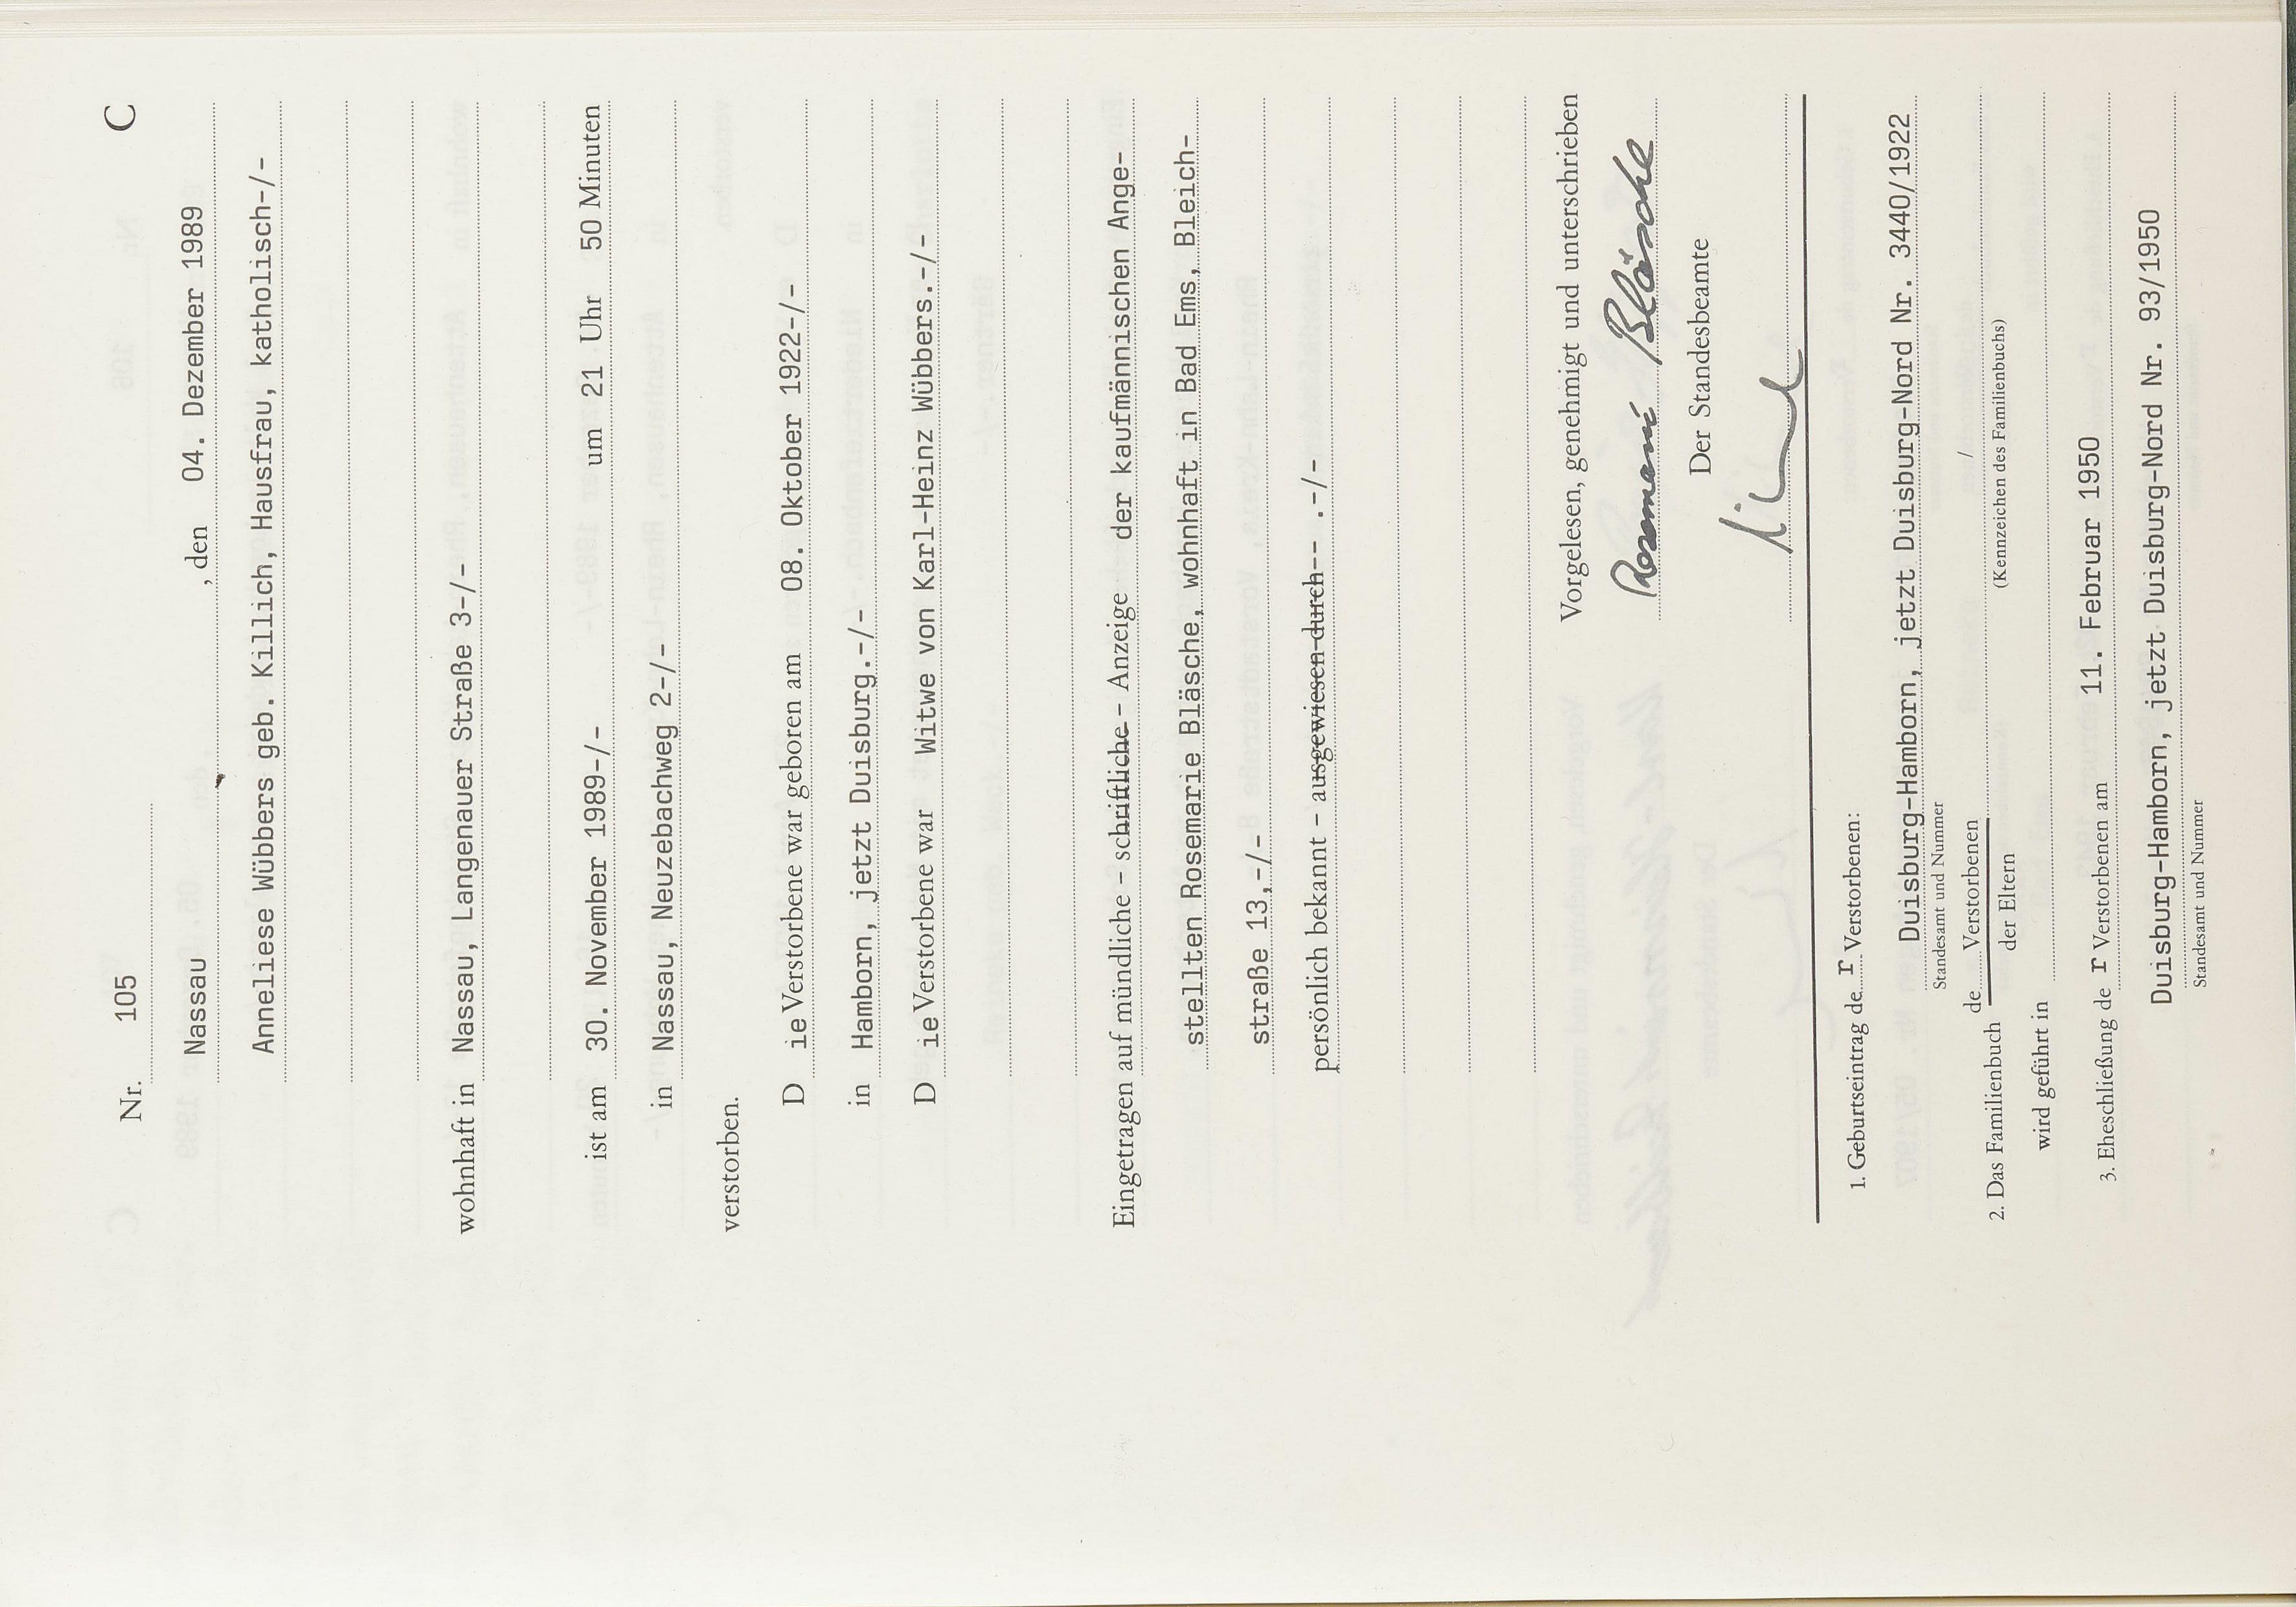 Nr. 105 C
Nassau , den 04. Dezember 1989
Anneliese Wübbers geb. Killich, Hausfrau, katholisch-/-
wohnhaft in Nassau, Langenauer Straße 3-/-
ist am 30. November 1989-/- um 21 Uhr 50 Minuten
in Nassau, Neuzebachweg 2-/-
verstorben.
D ie Verstorbene war geboren am 08. Oktober 1922-/-
in Hamborn, jetzt Duisburg.-/-
D ie Verstorbene war Witwe von Karl-Heinz Wübbers.-/-
Eingetragen auf mündliche - schriftliche - Anzeige der kaufmännischen Ange-
stellten Rosemarie Bläsche, wohnhaft in Bad Ems, Bleich-
straße 13,-/-
persönlich bekannt - ausgewiesen durch-- .-/-
Vorgelesen, genehmigt und unterschrieben
Rosemarie Bläsche
Der Standesbeamte
1. Geburtseintrag de r Verstorbenen:
Duisburg-Hamborn, jetzt Duisburg-Nord Nr. 3440/1922
Standesamt und Nummer
2. Das Familienbuch de Verstorbenen /
der Eltern (Kennzeichen des Familienbuchs)
wird geführt in
3. Eheschließung de r Verstorbenen am 11. Februar 1950
Duisburg-Hamborn, jetzt Duisburg-Nord Nr. 93/1950
Standesamt und Nummer